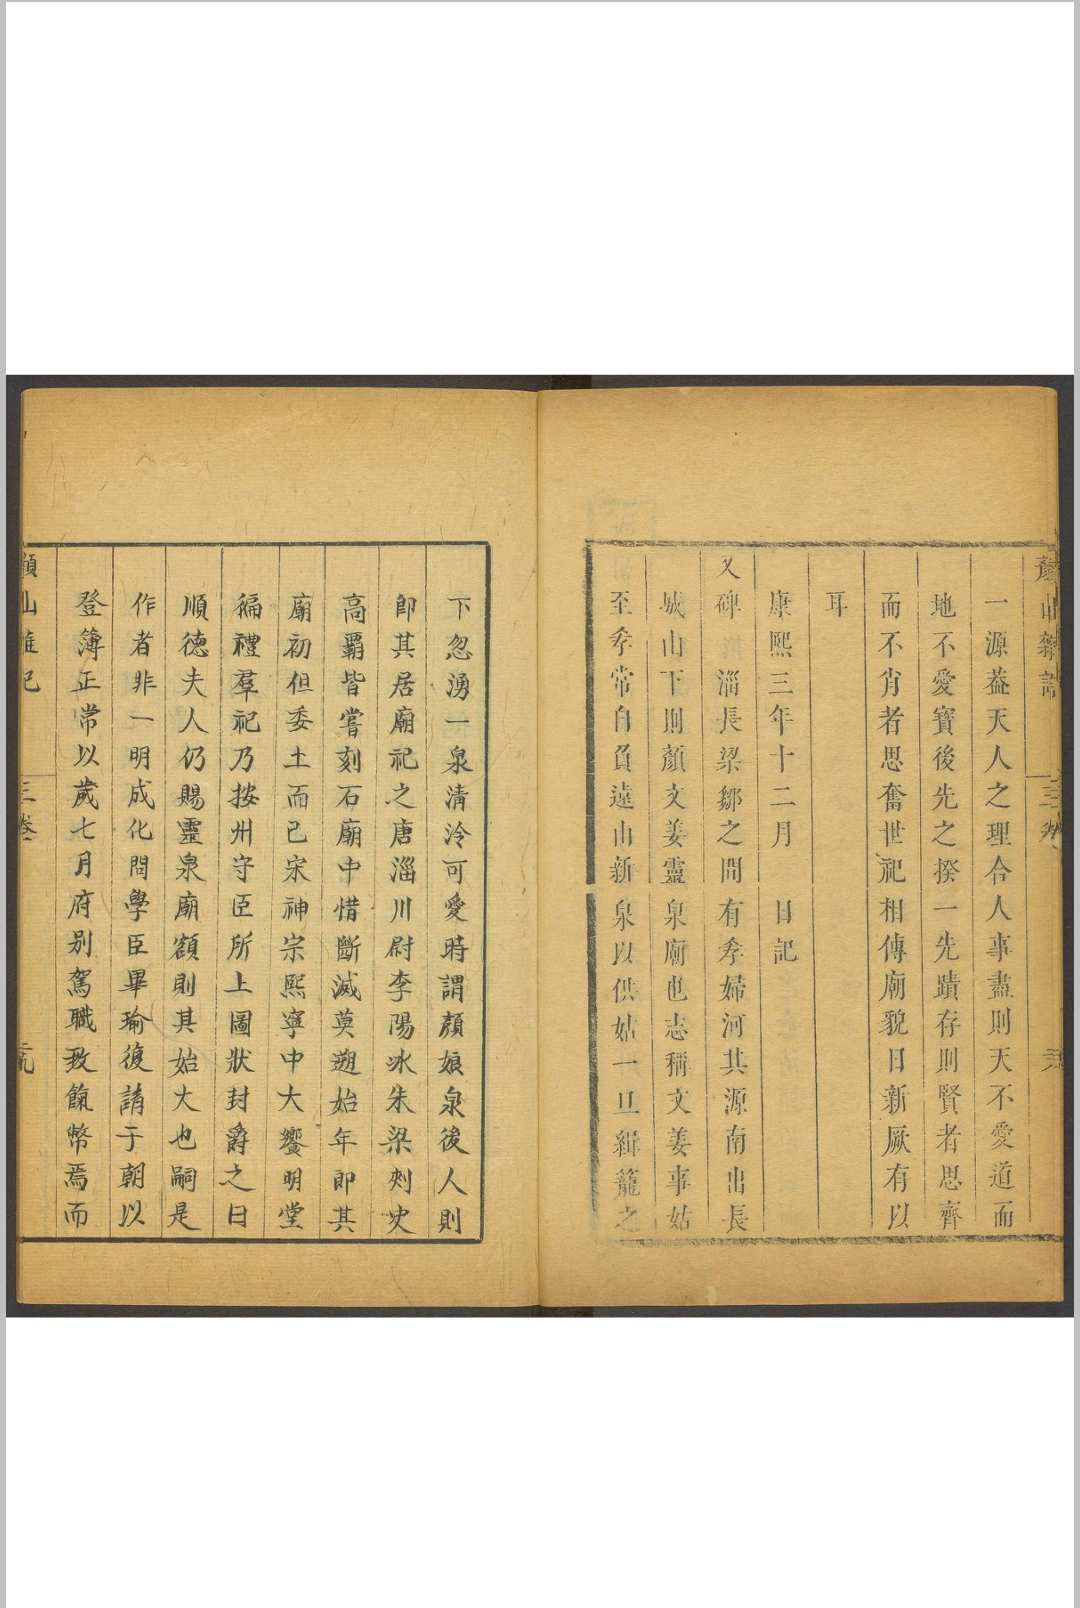 顏山雜記
三卷
一源葢天人之理合人事盡則天不愛道而
地不愛寶後先之揆一先蹟存則賢者思齊
而不肖者思奮世祀相傳廟貌日新厥有以
耳
康熙三年十二月 日記
又碑 淄長梁鄒之間有孝婦河其源南出長
城山下則顏文姜靈泉廟也志稱文姜事姑
至孝常自負遠山新泉以供姑一旦緝籠之
下忽湧一泉清泠可愛時謂顏娘泉後人則
即其居廟祀之唐淄川尉李陽冰朱梁刾史
高霸皆嘗刻石廟中惜斷滅莫遡始年即其
廟初但委土而已宋神宗熙寧中大饗明堂
徧禮羣祀乃按州守臣所上圖狀封爵之曰
順德夫人仍賜靈泉廟額則其始大也嗣是
作者非一明成化間學臣畢瑜復請于朝以
登簿正常以歲七月府别駕職致餼幣焉而
顏山雜記
三卷